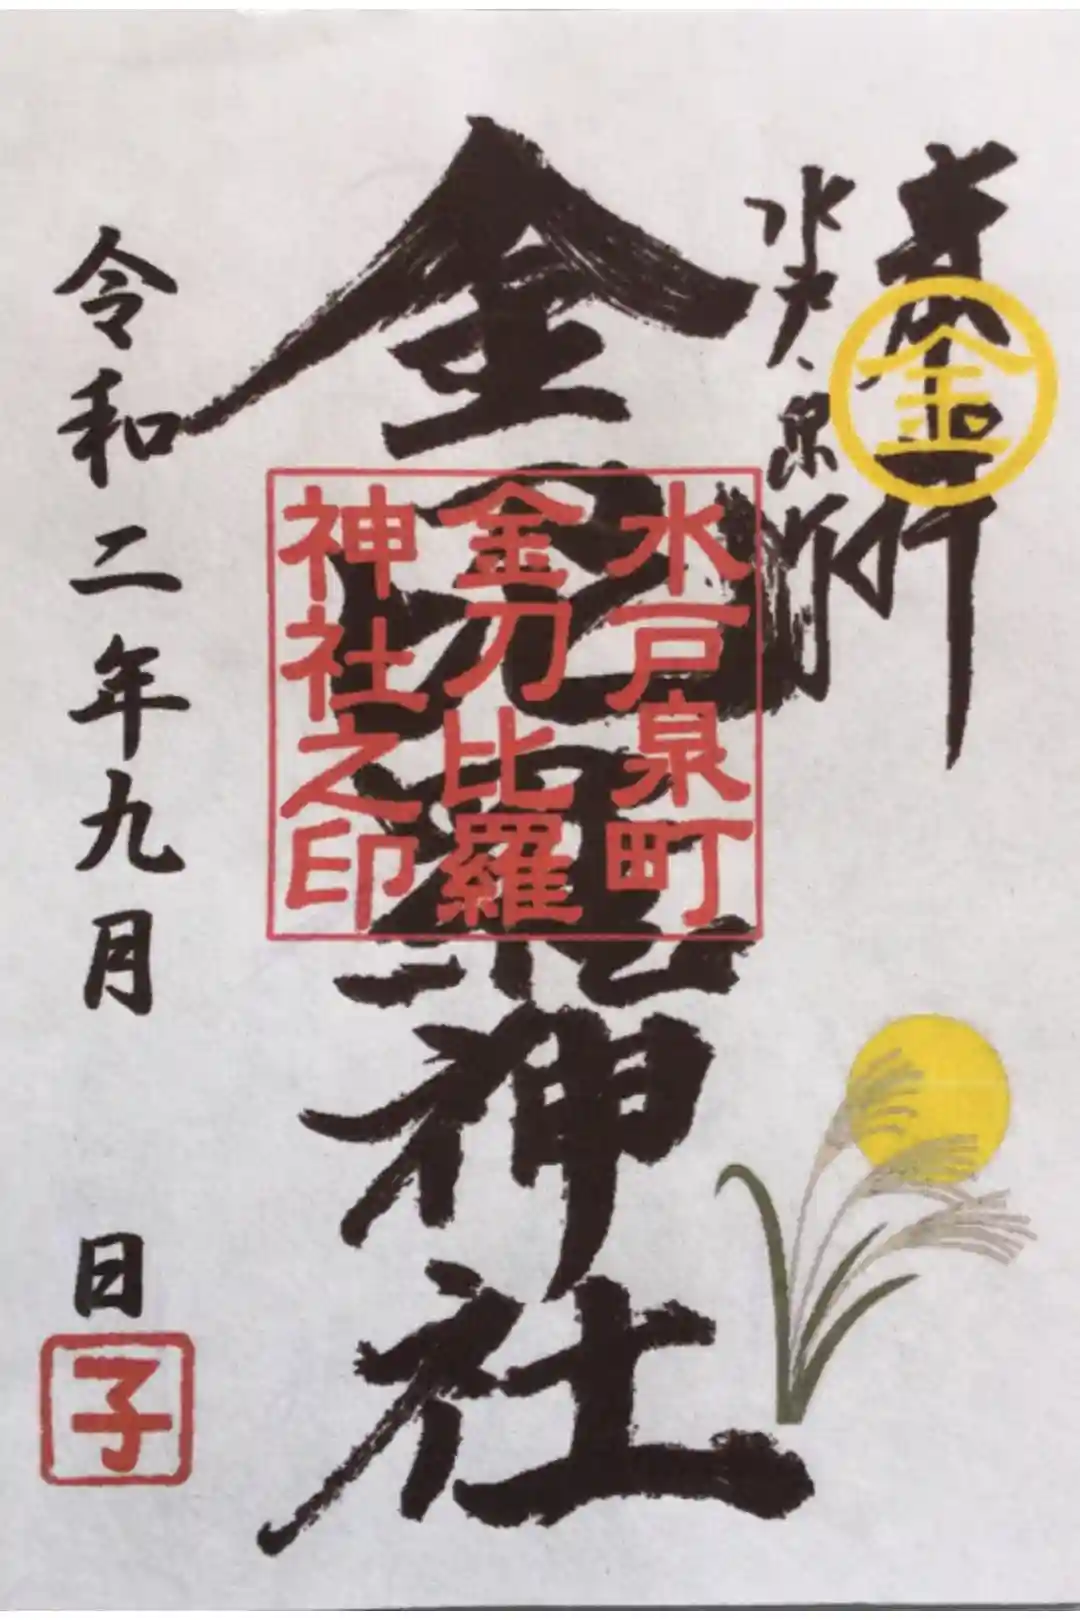 奉拝
金
水戸、泉町
金刀比羅神社
水戸泉町
金刀比羅
神社之印
令和二年九月 日
子